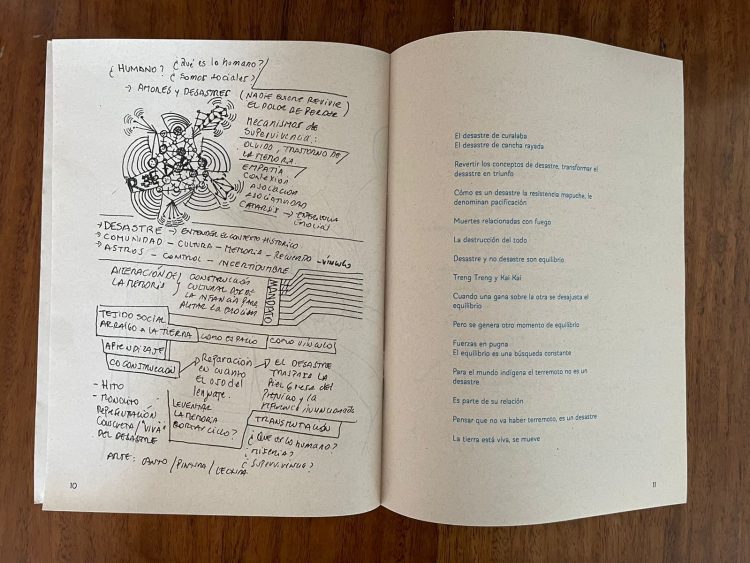 ¿HUMANO? ¿Qué es lo humano?
¿Somos sociales?
→ AMORES Y DESASTRES (NADIE QUIERE REVIVIR
EL DOLOR DE PERDER)
MECANISMOS DE
SUPERVIVENCIA:
OLVIDO, TRASTORNO DE
LA MEMORIA
EMPATÍA
CONEXIÓN
ASOCIACIÓN
ASOCIATIVIDAD
CATARSIS →
→ DESASTRE → ENTENDER EL CONTEXTO HISTÓRICO
→ COMUNIDAD - CULTURA - MEMORIA - RECUERDO - VÍNCULO
→ ASTROS - CONTROL - INCERTIDUMBRE
ALTERACIÓN DE
LA MEMORIA
CONSTRUCCIÓN
CULTURAL DESDE
LA INFANCIA PARA
LA EMOCIÓN
MANDATO
TEJIDO SOCIAL
ARRAIGO A LA TIERRA
COMO ESPACIO
COMO VÍNCULO
APRENDIZAJE
CO CONSTRUCCIÓN
→ Reparación
en cuanto
el uso del
lenguaje.
→ EL DESASTRE
TRASPASA LA
PIEL GRUESA DEL
Y LA
- HITO
- MONOLITO
REPRESENTACIÓN
CONCRETA/"VIVA"
DEL DESASTRE
LEVANTAR
LA MEMORIA
CORTAR CICLO?
TRANSMUTACIÓN
¿Qué es lo humano?
¿miseria?
¿supervivencia?
ARTE: CANTO / PINTURA /
10
El desastre de curalaba
El desastre de cancha rayada
Revertir los conceptos de desastre, transformar el
desastre en triunfo
Cómo es un desastre la resistencia mapuche, le
denominan pacificación
Muertes relacionadas con fuego
La destrucción del todo
Desastre y no desastre son equilibrio
Treng Treng y Kai Kai
Cuando una gana sobre la otra se desajusta el
equilibrio
Pero se genera otro momento de equilibrio
Fuerzas en pugna
El equilibrio es una búsqueda constante
Para el mundo indígena el terremoto no es un
desastre
Es parte de su relación
Pensar que no va haber terremoto, es un desastre
La tierra está viva, se mueve
11